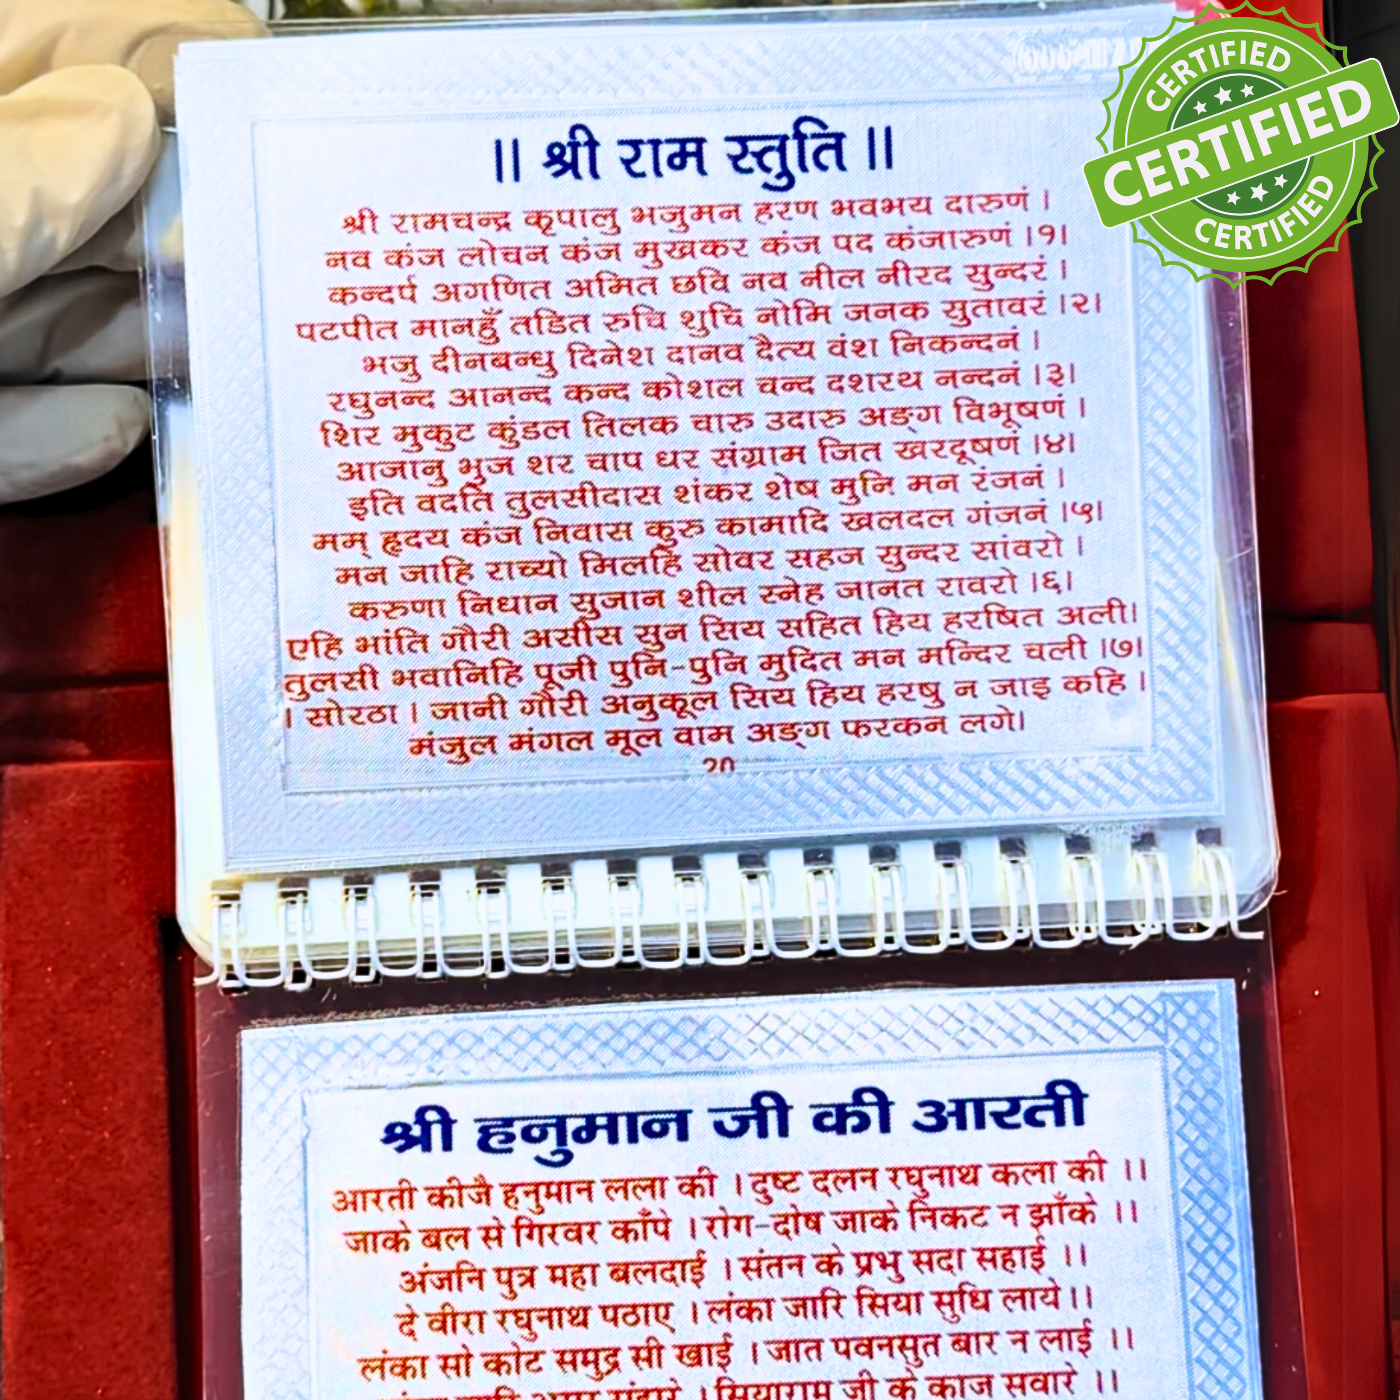 CERTIFIED
CERTIFIED
CERTIFIED
॥ श्री राम स्तुति ॥
श्री रामचन्द्र कृपालु भजुमन हरण भवभय दारुणं ।
नव कंज लोचन कंज मुखकर कंज पद कंजारुणं ।१।
कन्दर्प अगणित अमित छवि नव नील नीरद सुन्दरं ।
पटपीत मानहुँ तडित रुचि शुचि नोमि जनक सुतावरं ।२।
भजु दीनबन्धु दिनेश दानव दैत्य वंश निकन्दनं ।
रघुनन्द आनन्द कन्द कोशल चन्द दशरथ नन्दनं ।३।
शिर मुकुट कुंडल तिलक चारु उदारु अङ्ग विभूषणं ।
आजानु भुज शर चाप धर संग्राम जित खरदूषणं ।४।
इति वदति तुलसीदास शंकर शेष मुनि मन रंजनं ।
मम् हृदय कंज निवास कुरु कामादि खलदल गंजनं ।५।
मन जाहि राच्यो मिलहि सोवर सहज सुन्दर सांवरो ।
करुणा निधान सुजान शील स्नेह जानत रावरो ।६।
एहि भांति गौरी असीस सुन सिय सहित हिय हरषित अली।
तुलसी भवानिहि पूजी पुनि-पुनि मुदित मन मन्दिर चली ।७।
। सोरठा । जानी गौरी अनुकूल सिय हिय हरषु न जाइ कहि ।
मंजुल मंगल मूल वाम अङ्ग फरकन लगे।
श्री हनुमान जी की आरती
आरती कीजै हनुमान लला की । दुष्ट दलन रघुनाथ कला की ।।
जाके बल से गिरवर काँपे । रोग-दोष जाके निकट न झाँके ।।
अंजनि पुत्र महा बलदाई । संतन के प्रभु सदा सहाई ।।
दे वीरा रघुनाथ पठाए । लंका जारि सिया सुधि लाये।।
लंका सो कोट समुद्र सी खाई । जात पवनसुत बार न लाई ।।
। सियाराम जी के काज सवारे ।।